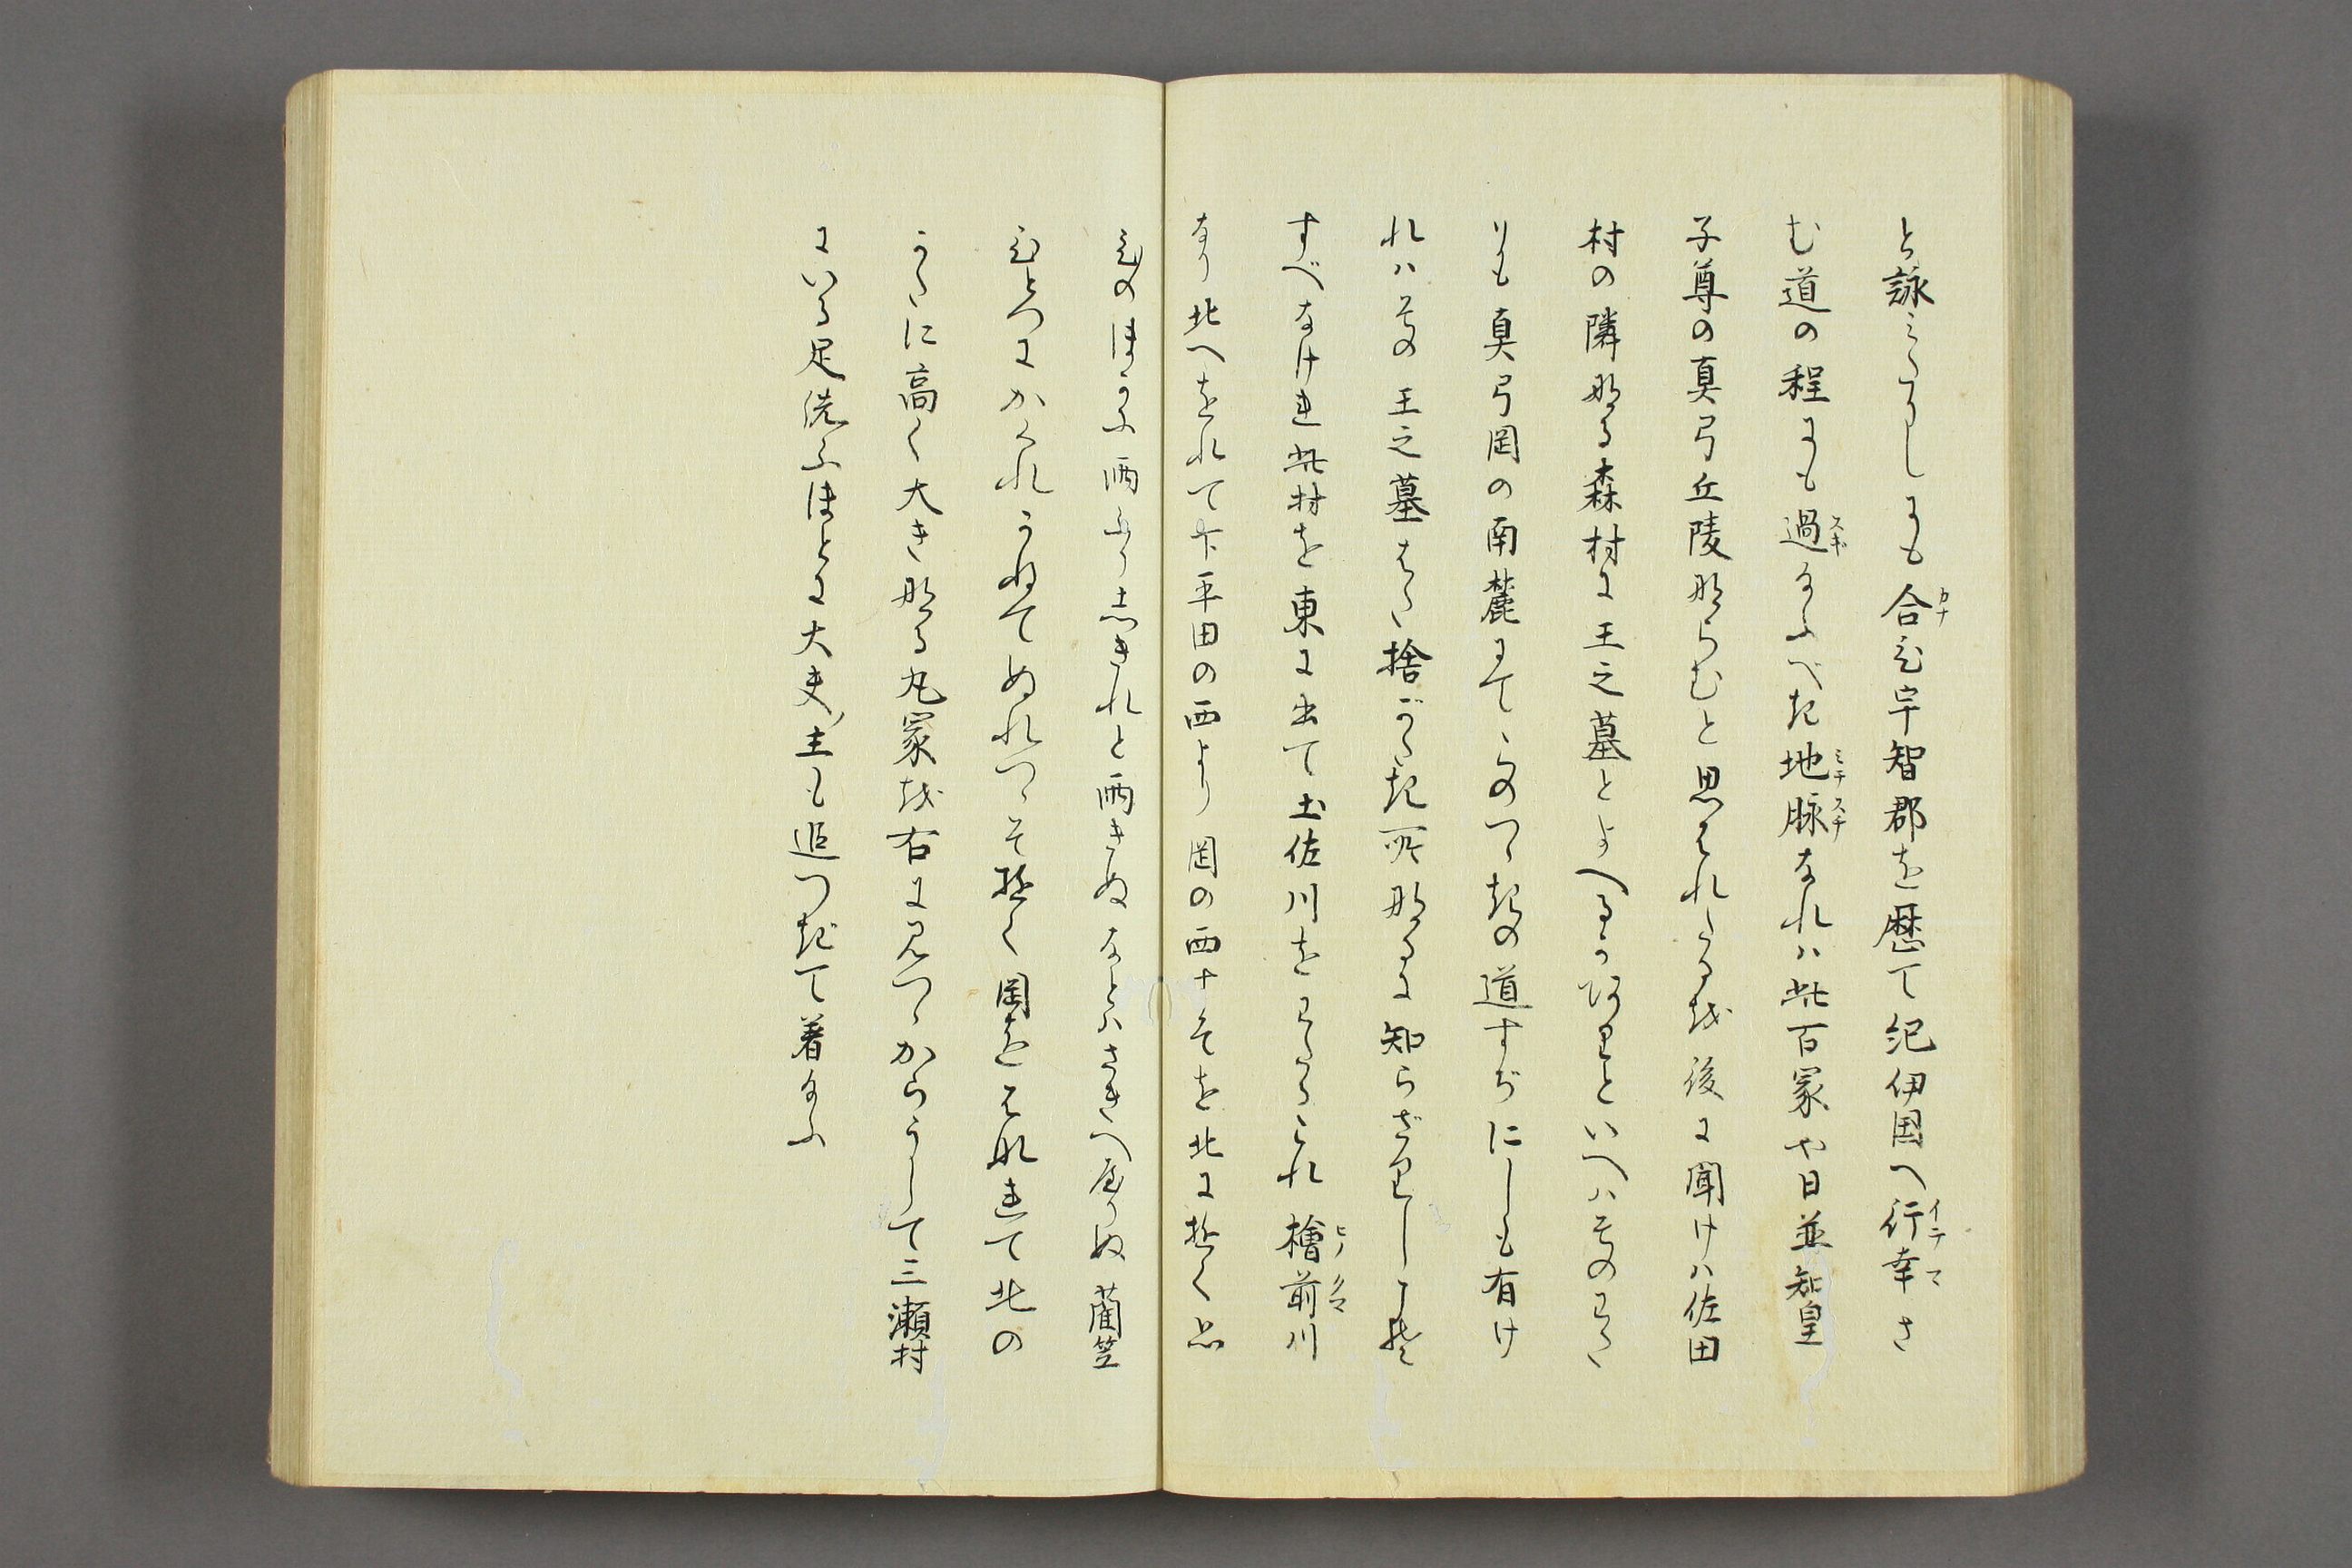 と詠ミたまひしにも合ひ宇智郡を歴て紀伊国へ行幸さ
む道の程にも過給ふべき地脉なれハ此百冢や日並知皇
子尊の真弓丘陵ならむと思はれたるを後に聞けハ佐田
村の隣なる森村に王之墓とよべるがありといへハその わた
りも真弓岡の南麓にてこのつゝきの道すぢにしも有け
れハその王之墓はた捨がたき所なるに知らざりしこそ
すべなけれ此村を東に出て土佐川をわたるこれ檜前川
なり北へをれて下平田の西より岡の西十そを北に越く品
ひのほる 雨ふりしきれと雨きぬなとハさきへやりぬ藺笠
ひとつにかくれかねてぬれつゝそ越く岡をはなれて北の
かたに高く大き なる丸冢を右に見つゝからうして三瀬村
にいる足洗ふほとに大夫ノ主も追つきて着給ふ